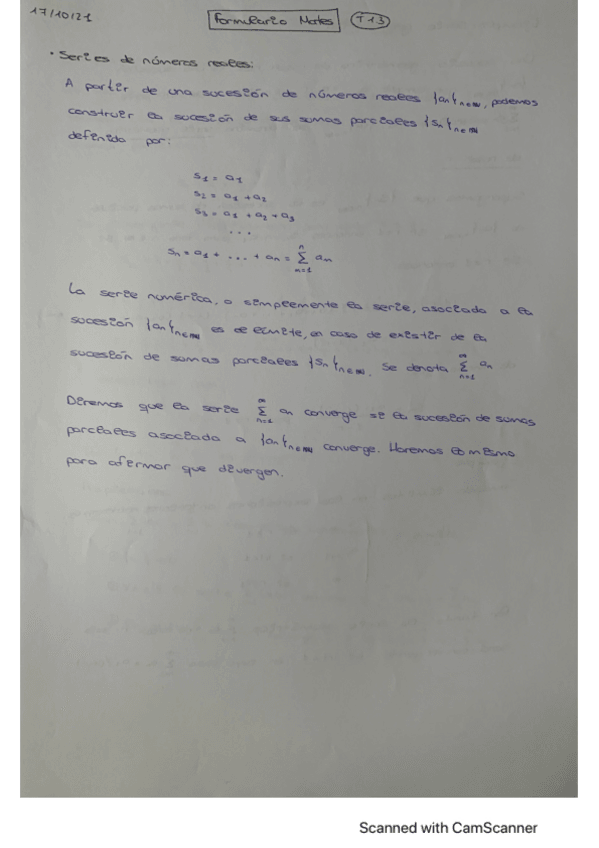 17/10/21
Formulario Mates T13
· Series de números reales:
A partir de una sucesión de números reales {an}n∈ℕ, podemos
construir la sucesión de sus sumas parciales {sn}n∈ℕ
definida por:
s1 = a1
s2 = a1 + a2
s3 = a1 + a2 + a3
...
sn = a1 + ... + an = n Σ n=1 an
La serie numérica, o simplemente la serie, asociada a la
sucesión {an}n∈ℕ es el límite, en caso de existir de la
sucesión de sumas parciales {sn}n∈ℕ. Se denota ∞ Σ n=1 an
Diremos que la serie ∞ Σ n=1 an converge si la sucesión de sumas
parciales asociada a {an}n∈ℕ converge. Haremos lo mismo
para afirmar que divergen.
Scanned with CamScanner